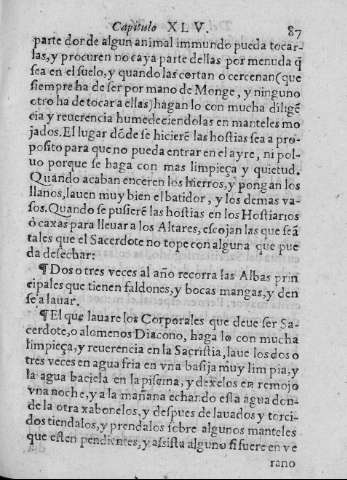 Capitulo XLV. 87
parte donde algun animal immundo pueda tocar-
las, y procuren no caya parte dellas por menuda q̃
sea en el suelo, y quando las cortan o cercenan (que
siempre ha de ser por mano de Monge, y ninguno
otro ha de tocar a ellas) hagan lo con mucha diligẽ
cia y reuerencia humedeciendolas en manteles mo
jados. El lugar dõde se hicierẽ las hostias sea a pro-
posito para que no pueda entrar en el ayre, ni pol-
uo porque se haga con mas limpieça y quietud.
Quando acaban enceren los hierros, y pongan los
llanos, lauen muy bien el batidor, y los demas va-
sos. Quando se pusierẽ las hostias en los Hostiarios
ò caxas para lleuar a los Altares, escojan las que seã
tales que el Sacerdote no tope con alguna que pue
da desechar:
¶ Dos o tres veces al año recorra las Albas prin
cipales que tienen faldones, y bocas mangas, y den
se a lauar.
¶ El que lauare los Corporales que deue ser Sa-
cerdote, o alomenos Diacono, haga lo con mucha
limpieça, y reuerencia en la Sacristia, laue los dos o
tres veces en agua fria en vna basija muy limpia, y
la agua baciela en la piscina, y dexelos en remojo
vna noche, y a la mañana echando esta agua don-
de la otra xabonelos, y despues de lauados y torci-
dos tiendalos, y prendalos sobre algunos manteles
que esten pendientes, y assista alguno si fuere en ve
rano